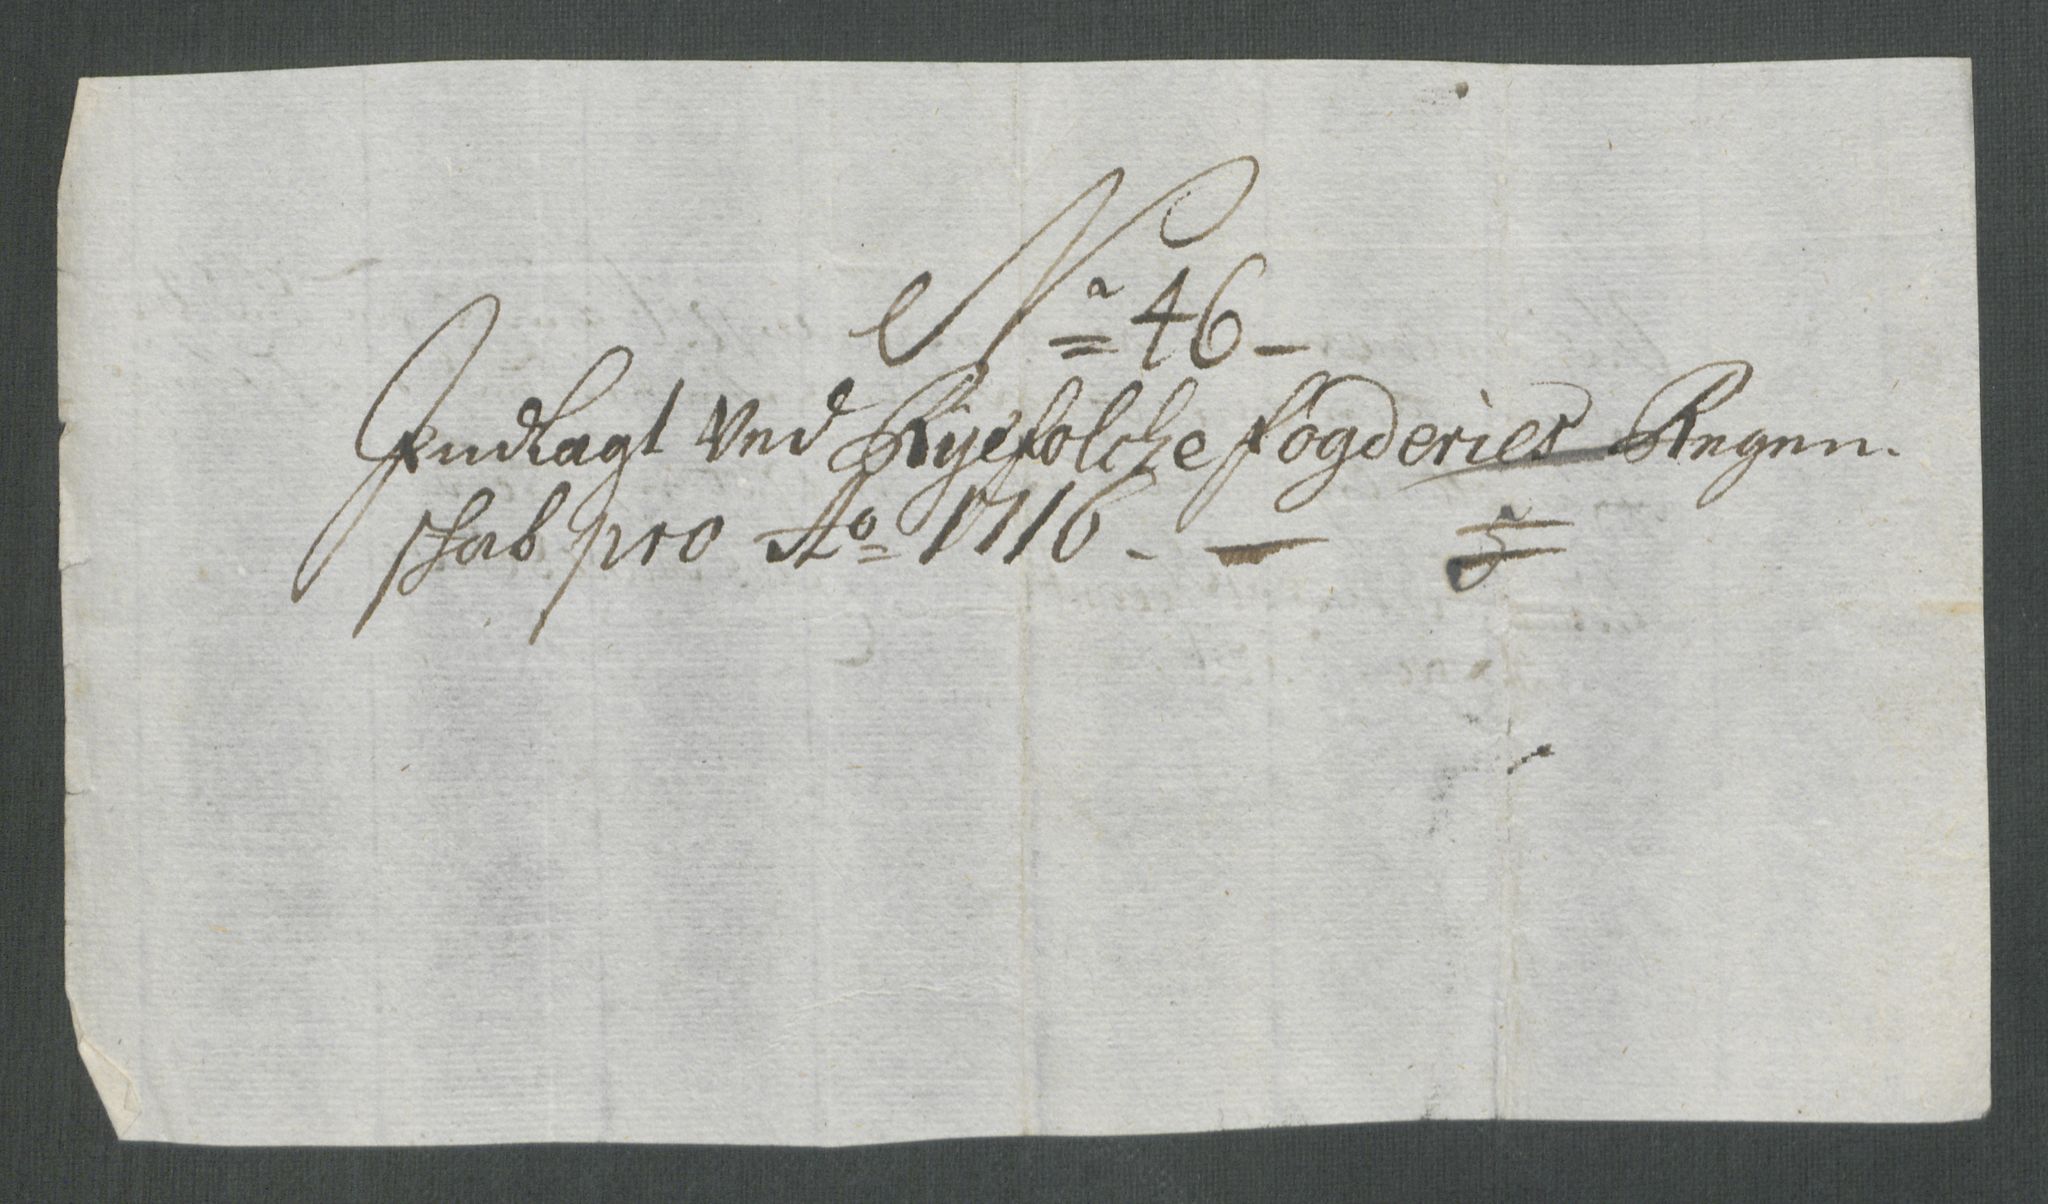 No 46 –
Indlagt Ved Ryefolche fogderies Regen-
schab pro Ao 1716 –